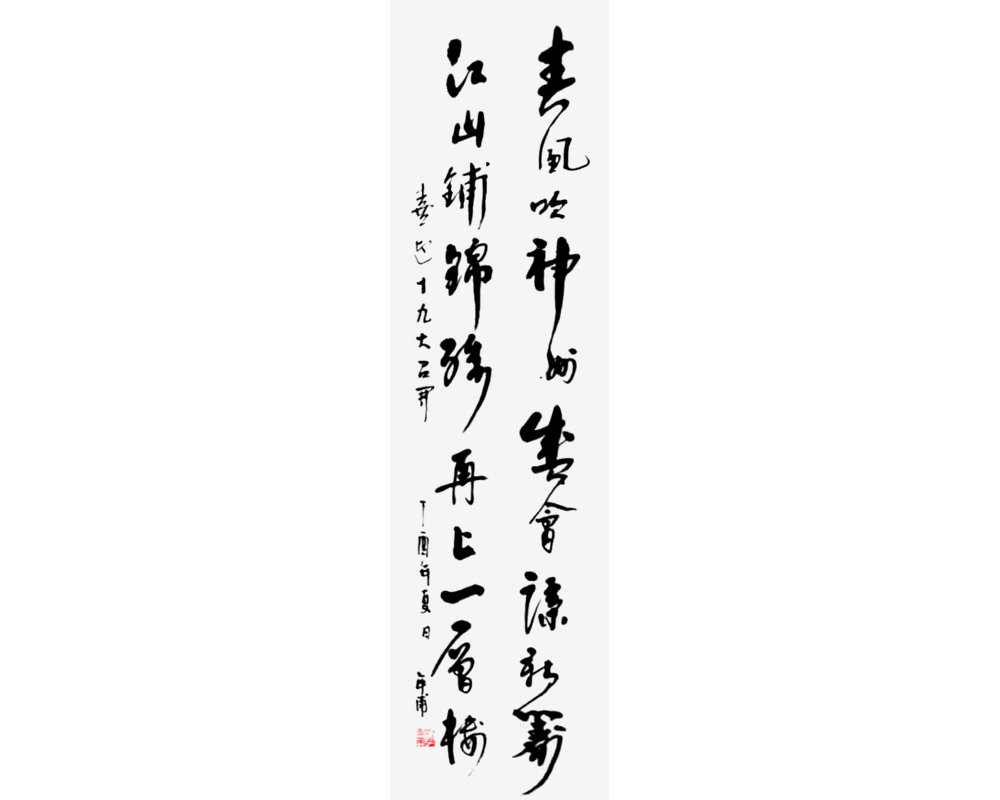 春風吹神州盛會謀新籌
江山鋪錦綉再上一層樓
喜迎十九大召開 丁酉年夏日 年甫